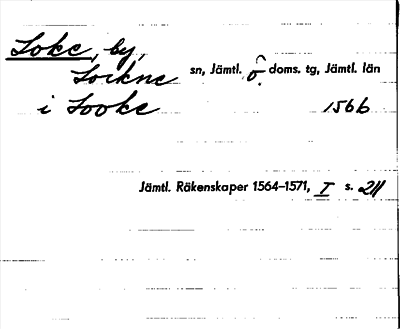 Loke, by,
Lockne sn, Jämtl. ö. doms. tg, Jämtl. län
i Looke 1566
Jämtl. Räkenskaper 1564–1571, I s. 211